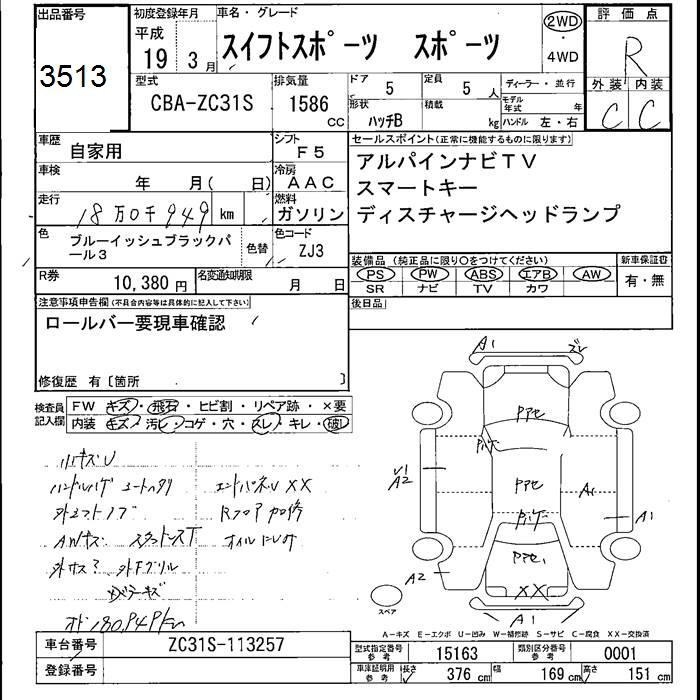 出品番号
3513
初度登録年月
平成
19 3月
車名・グレード
スイフトスポーツ スポーツ
2WD
・
4WD
評価点
R
外装 内装
C C
型式
CBA-ZC31S
排気量
1586
CC
ドア
5
定員
5人
形状
ハッチB
積載
kg
ディーラー・並行
モデル年式 年
ハンドル 左・右
車歴
自家用
シフト
F5
車検
年 月( 日)
冷房
AAC
走行
18万0千949 km
燃料
ガソリン
色
ブルーイッシュブラックパール3
色替
色コード
ZJ3
R券
10,380円
名変通知期限
月 日
セールスポイント(正常に機能するものに限ります)
アルパインナビTV
スマートキー
ディスチャージヘッドランプ
装備品(純正品に限り○をつけてください)
PS PW ABS エアB AW
SR ナビ TV カワ
新車保証書
有・無
後日品
注意事項申告欄(不具合内容等は具体的に記入して下さい)
ロールバー要現車確認
修復歴 有〔箇所 〕
検査員記入欄
FW キズ・飛石・ヒビ割・リペア跡・×要
内装 キズ・汚レ・コゲ・穴・スレ・キレ・破レ
ハンドルハゲ シートヘタリ
エンドパネルU XX
外シフトノブ
Rフロア加修
AWキズ
オイルにじみ
外Fグリル
A1
ズレ
PアセPキズ
A1
A2
A1
A1
A2
XX
A1
スペア
A-キズ E-エクボ U-凹み W-補修跡 S-サビ C-腐食 XX-交換済
車台番号
ZC31S-113257
登録番号
型式指定番号 参考
15163
類別区分番号 参考
0001
車庫証明用 参考
長さ 376cm
幅 169cm
高さ 151cm